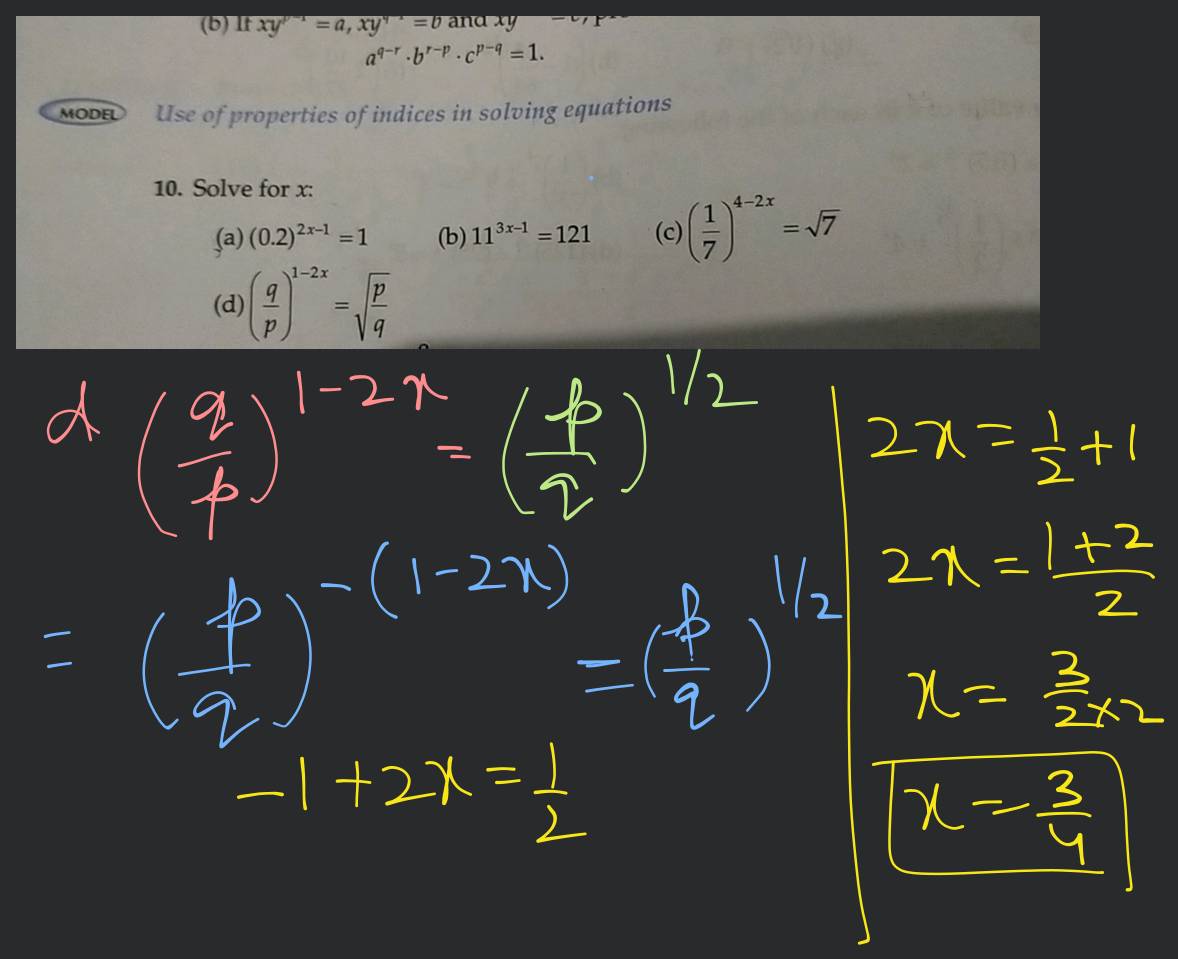 (b) If xy = a, xy = b and xy
a^{q–r} · b^{r–p} · c^{p–q} = 1.
MODEL Use of properties of indices in solving equations
10. Solve for x:
(a) (0.2)^{2x–1} = 1 (b) 11^{3x–1} = 121 (c) (1/7)^{4–2x} = √7
(d) (q/p)^{1–2x} = √(p/q)
d (q/p)^{1–2x} = (p/q)^{1/2}
= (p/q)^{–(1–2x)} = (p/q)^{1/2}
–1 + 2x = 1/2
2x = 1/2 + 1
2x = (1+2)/2
x = 3/(2×2)
x = 3/4